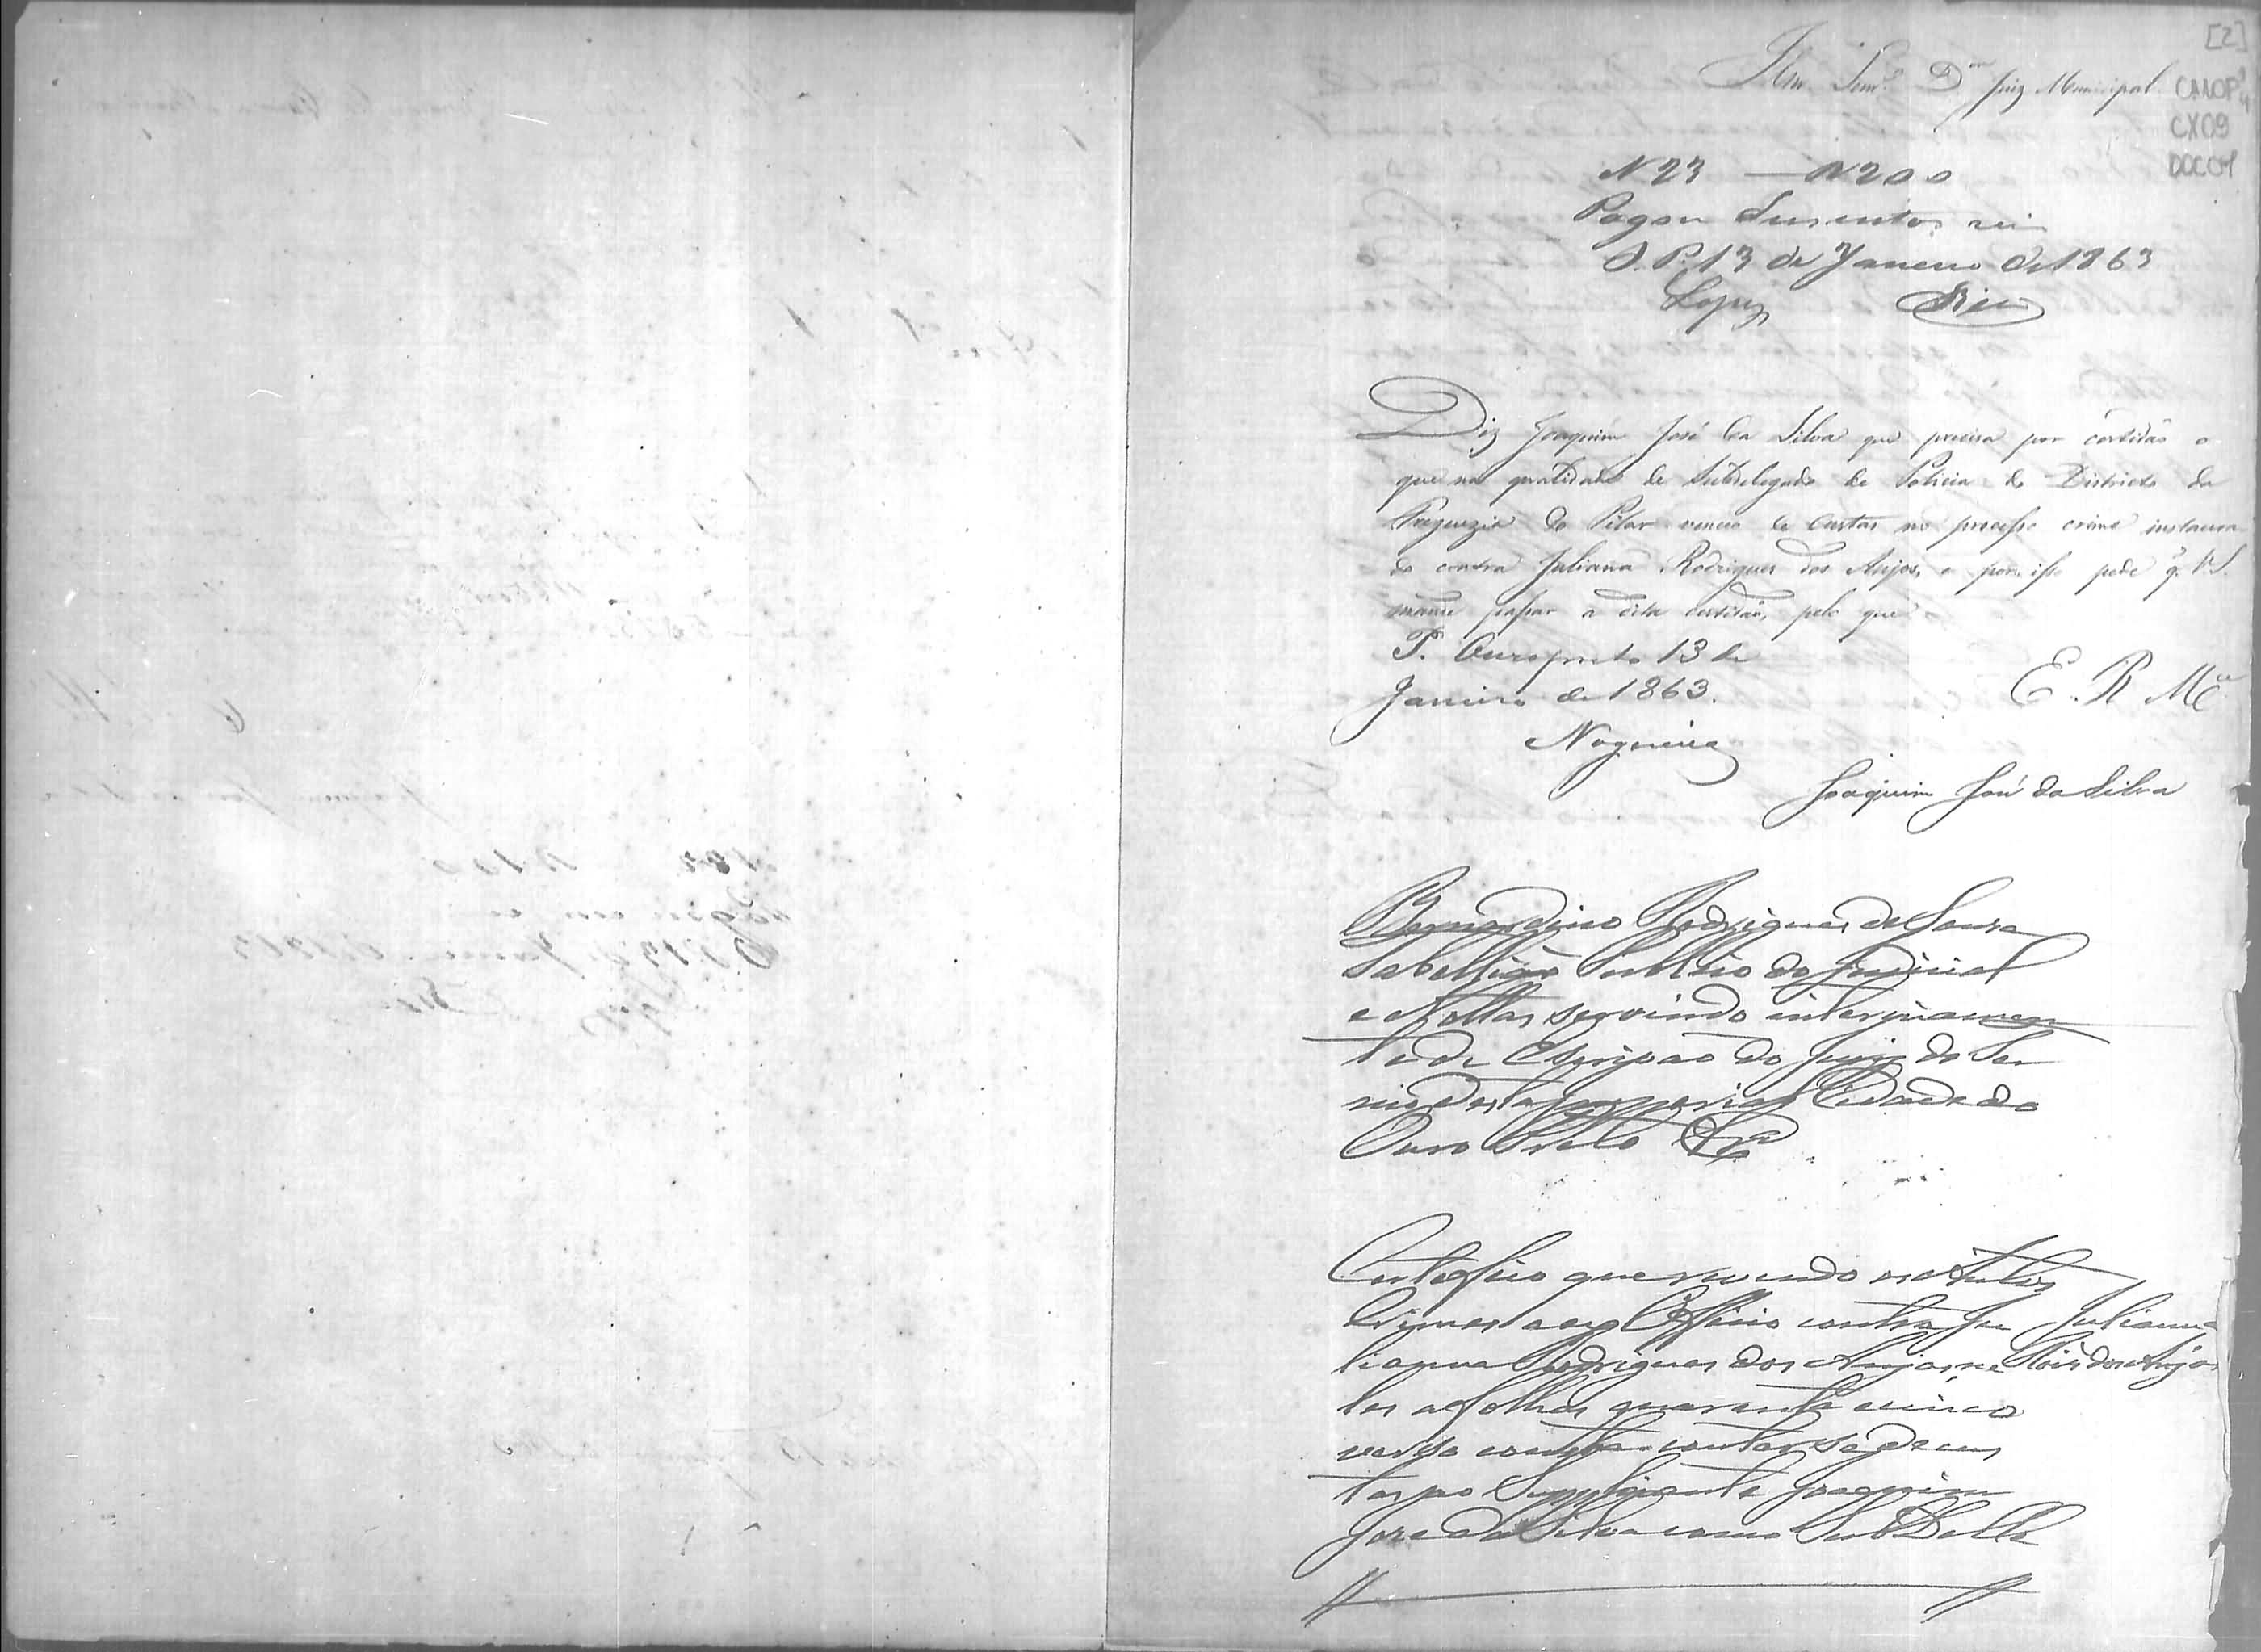 [2]
Illm. Senr. Dor Juiz Municipal
CMOP
CX09
DOC04
N 23 — N 200
Pagou Dusentos reis
O. P. 13 de Janeiro de 1863
Lopes
Diz Joaquim José da Silva que precisa por certidão o
que na qualidade de Subdelegado de Policia do Districto da
Freguezia do Pilar venceo de Custas no processo crime instaura
do contra Juliana Rodrigues dos Anjos, e por isso pede q. V.S.
mande passar a dita certidão, pelo que
P. Ouropreto 13 de
Janeiro de 1863.
E. R. Mce
Nogueira
Joaquim José da Silva
Bernardino Rodrigues de Souza
Tabellião Publico do Judicial
e Nottas servindo interinamen
te de Escrivão do Jury do Ter
mo desta Imperial Cidade do
Ouro Preto &ª
Certefico que revendo os Autos
Crimes a ex Officio contra Ju Julianna
lianna Rodrigues dos Anjos Roiz dos Anjos
les a folhas quarenta e cinco
verso consta contarse de cus
tas ao Supplicante Joaquim
Jose da Silva como Sub Delle